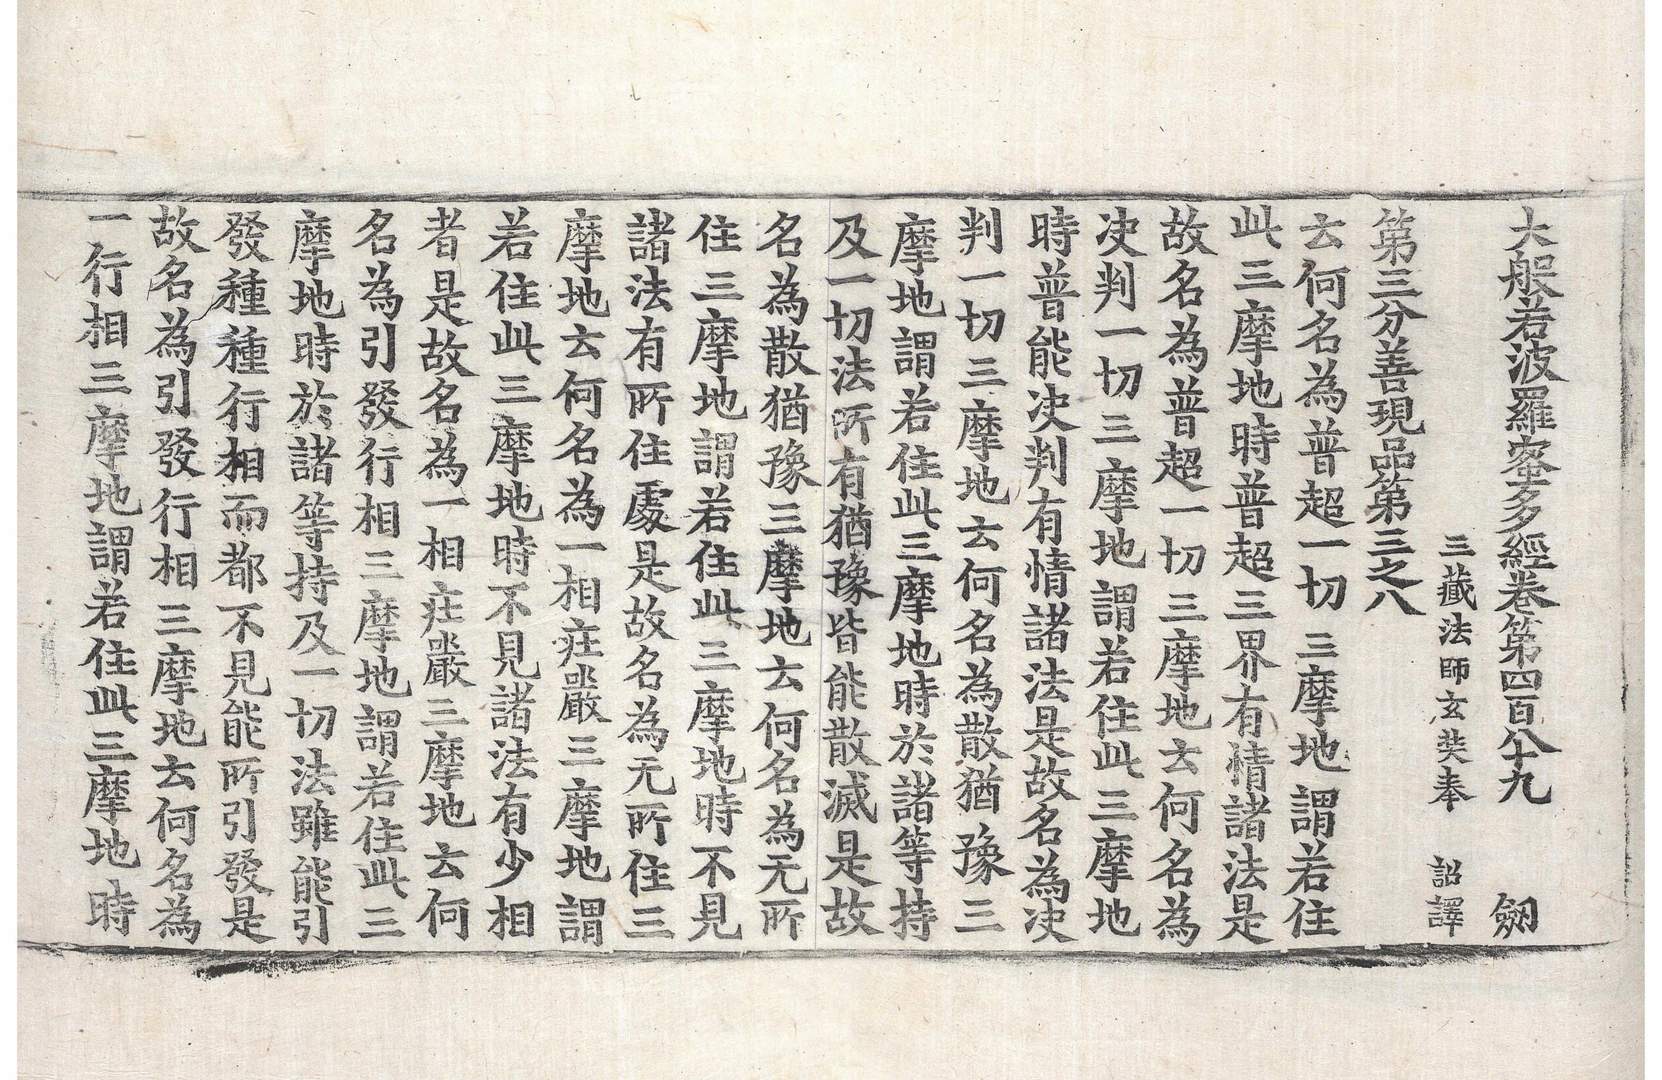 大般若波羅蜜多經卷第四百八十九 劒
三藏法師玄奘奉 詔譯
第三分善現品第三之八
云何名為普超一切三摩地謂若住
此三摩地時普超三界有情諸法是
故名為普超一切三摩地云何名為
决判一切三摩地謂若住此三摩地
時普能决判有情諸法是故名為决
判一切三摩地云何名為散猶豫三
摩地謂若住此三摩地時於諸等持
及一切法所有猶豫皆能散滅是故
名為散猶豫三摩地云何名為无所
住三摩地謂若住此三摩地時不見
諸法有所住處是故名為无所住三
摩地云何名為一相莊嚴三摩地謂
若住此三摩地時不見諸法有少相
者是故名為一相莊嚴三摩地云何
名為引發行相三摩地謂若住此三
摩地時於諸等持及一切法雖能引
發種種行相而都不見能所引發是
故名為引發行相三摩地云何名為
一行相三摩地謂若住此三摩地時